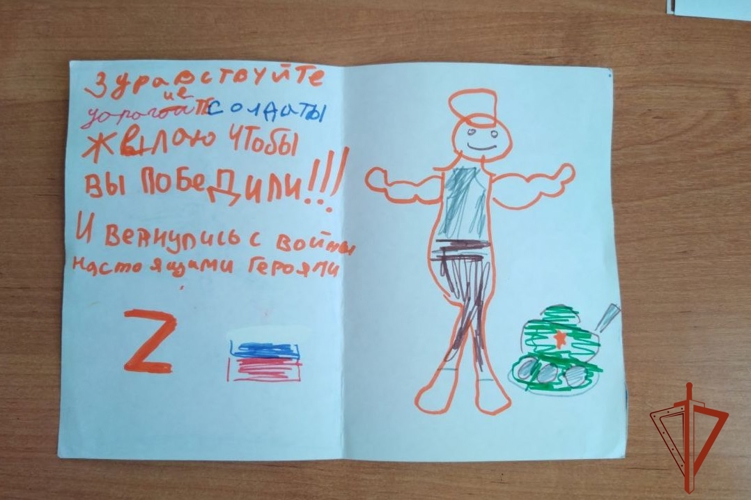 Здравствуйте
дорогоийе солдаты
жвлаю чтобы
вы победили!!!
И вернулись с войны
настоящами героями
Z